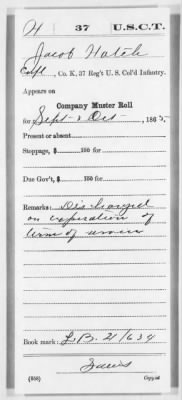 H 37 U.S.C.T.
Jacob Hatch
Capt., Co. K, 37 Reg't U. S. Col'd Infantry.
Appears on
Company Muster Roll
for Sept & Oct, 1865.
Present or absent
Stoppage, $ 100 for
Due Gov't, $ 100 for
Remarks: Discharged
on expiration of
term of service
Book mark: L.B. 21/634
(858) Copyist